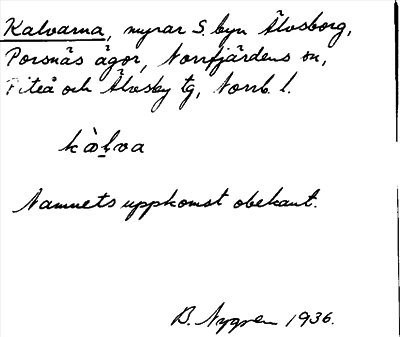 Kalvarna, myrar S. byn Älvsborg,
Porsnäs ägor, Norrfjärdens sn,
Piteå och Älvsby tg, Norrb. l.
Namnets uppkomst obekant.
B. Nygren 1936.